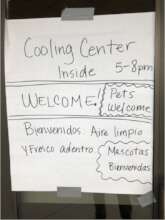 Cooling Center
Inside 5-8pm
WELCOME!
Pets
Welcome
Bienvenidos. Aire limpio
y Fresco adentro
Mascotas
Bienvenidas